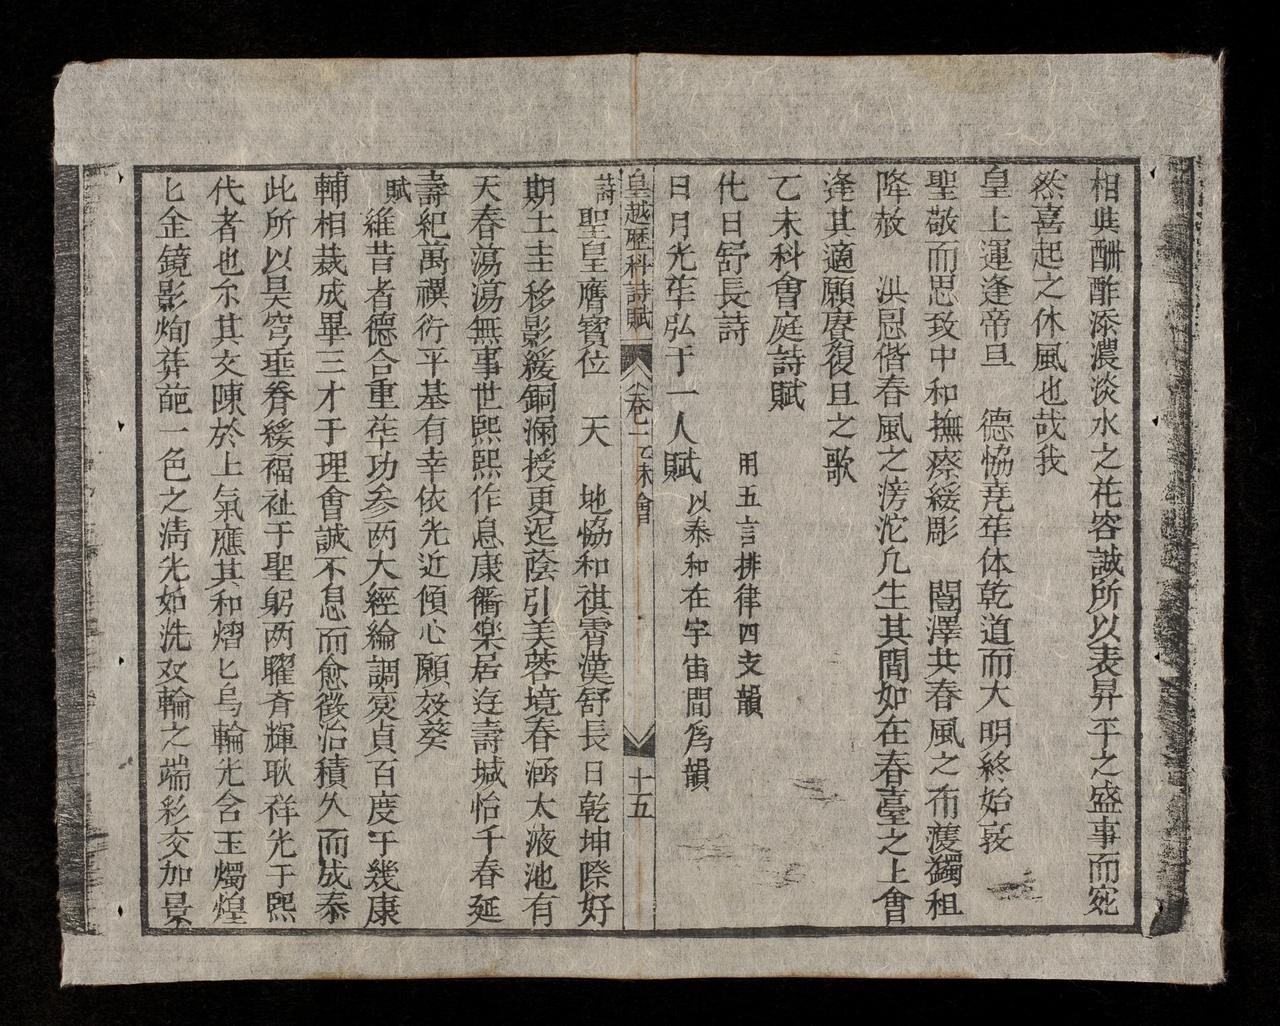 相與酬酢添濃淡水之花容誠所以表昇平之盛事而宛
然喜起之休風也哉我
皇上運逢帝旦　德協堯年体乾道而大明終始哀
聖敬而思致中和撫瘵綏彫　闓澤共春風之布濩蠲租
降赦　洪恩偕春風之滂沱凢生其間如在春臺之上會
逢其適願賡復旦之歌
乙未科會庭詩賦
化日舒長詩　用五言排律四支韻
日月光华弘于一人賦　以泰和在宇宙間爲韻
皇越歷科詩賦　卷一　乙未會　十五
詩　聖皇膺寳位　天　地協和祺霽漢舒長日乾坤際好
期土圭移影緩銅漏授更迟蔭引芙蓉境春涵太液池有
天春蕩蕩無事世熙熙作息康衢樂居迯壽堿怡千春延
壽紀萬禩衍平基有幸依光近傾心願效葵
賦　維昔者德合重华功参両大經綸調爕貞百度于幾康
輔相裁成畢三才于理會誠不息而愈徵治積久而成泰
此所以昊穹垂眷綏福祉于聖躬两曜齐輝耿祥光于熙
代者也尒其文陳於上氣應其和熠匕烏輪光含玉燭煌
匕金鏡影炯葬葩一色之清光如洗双輪之端彩交加景